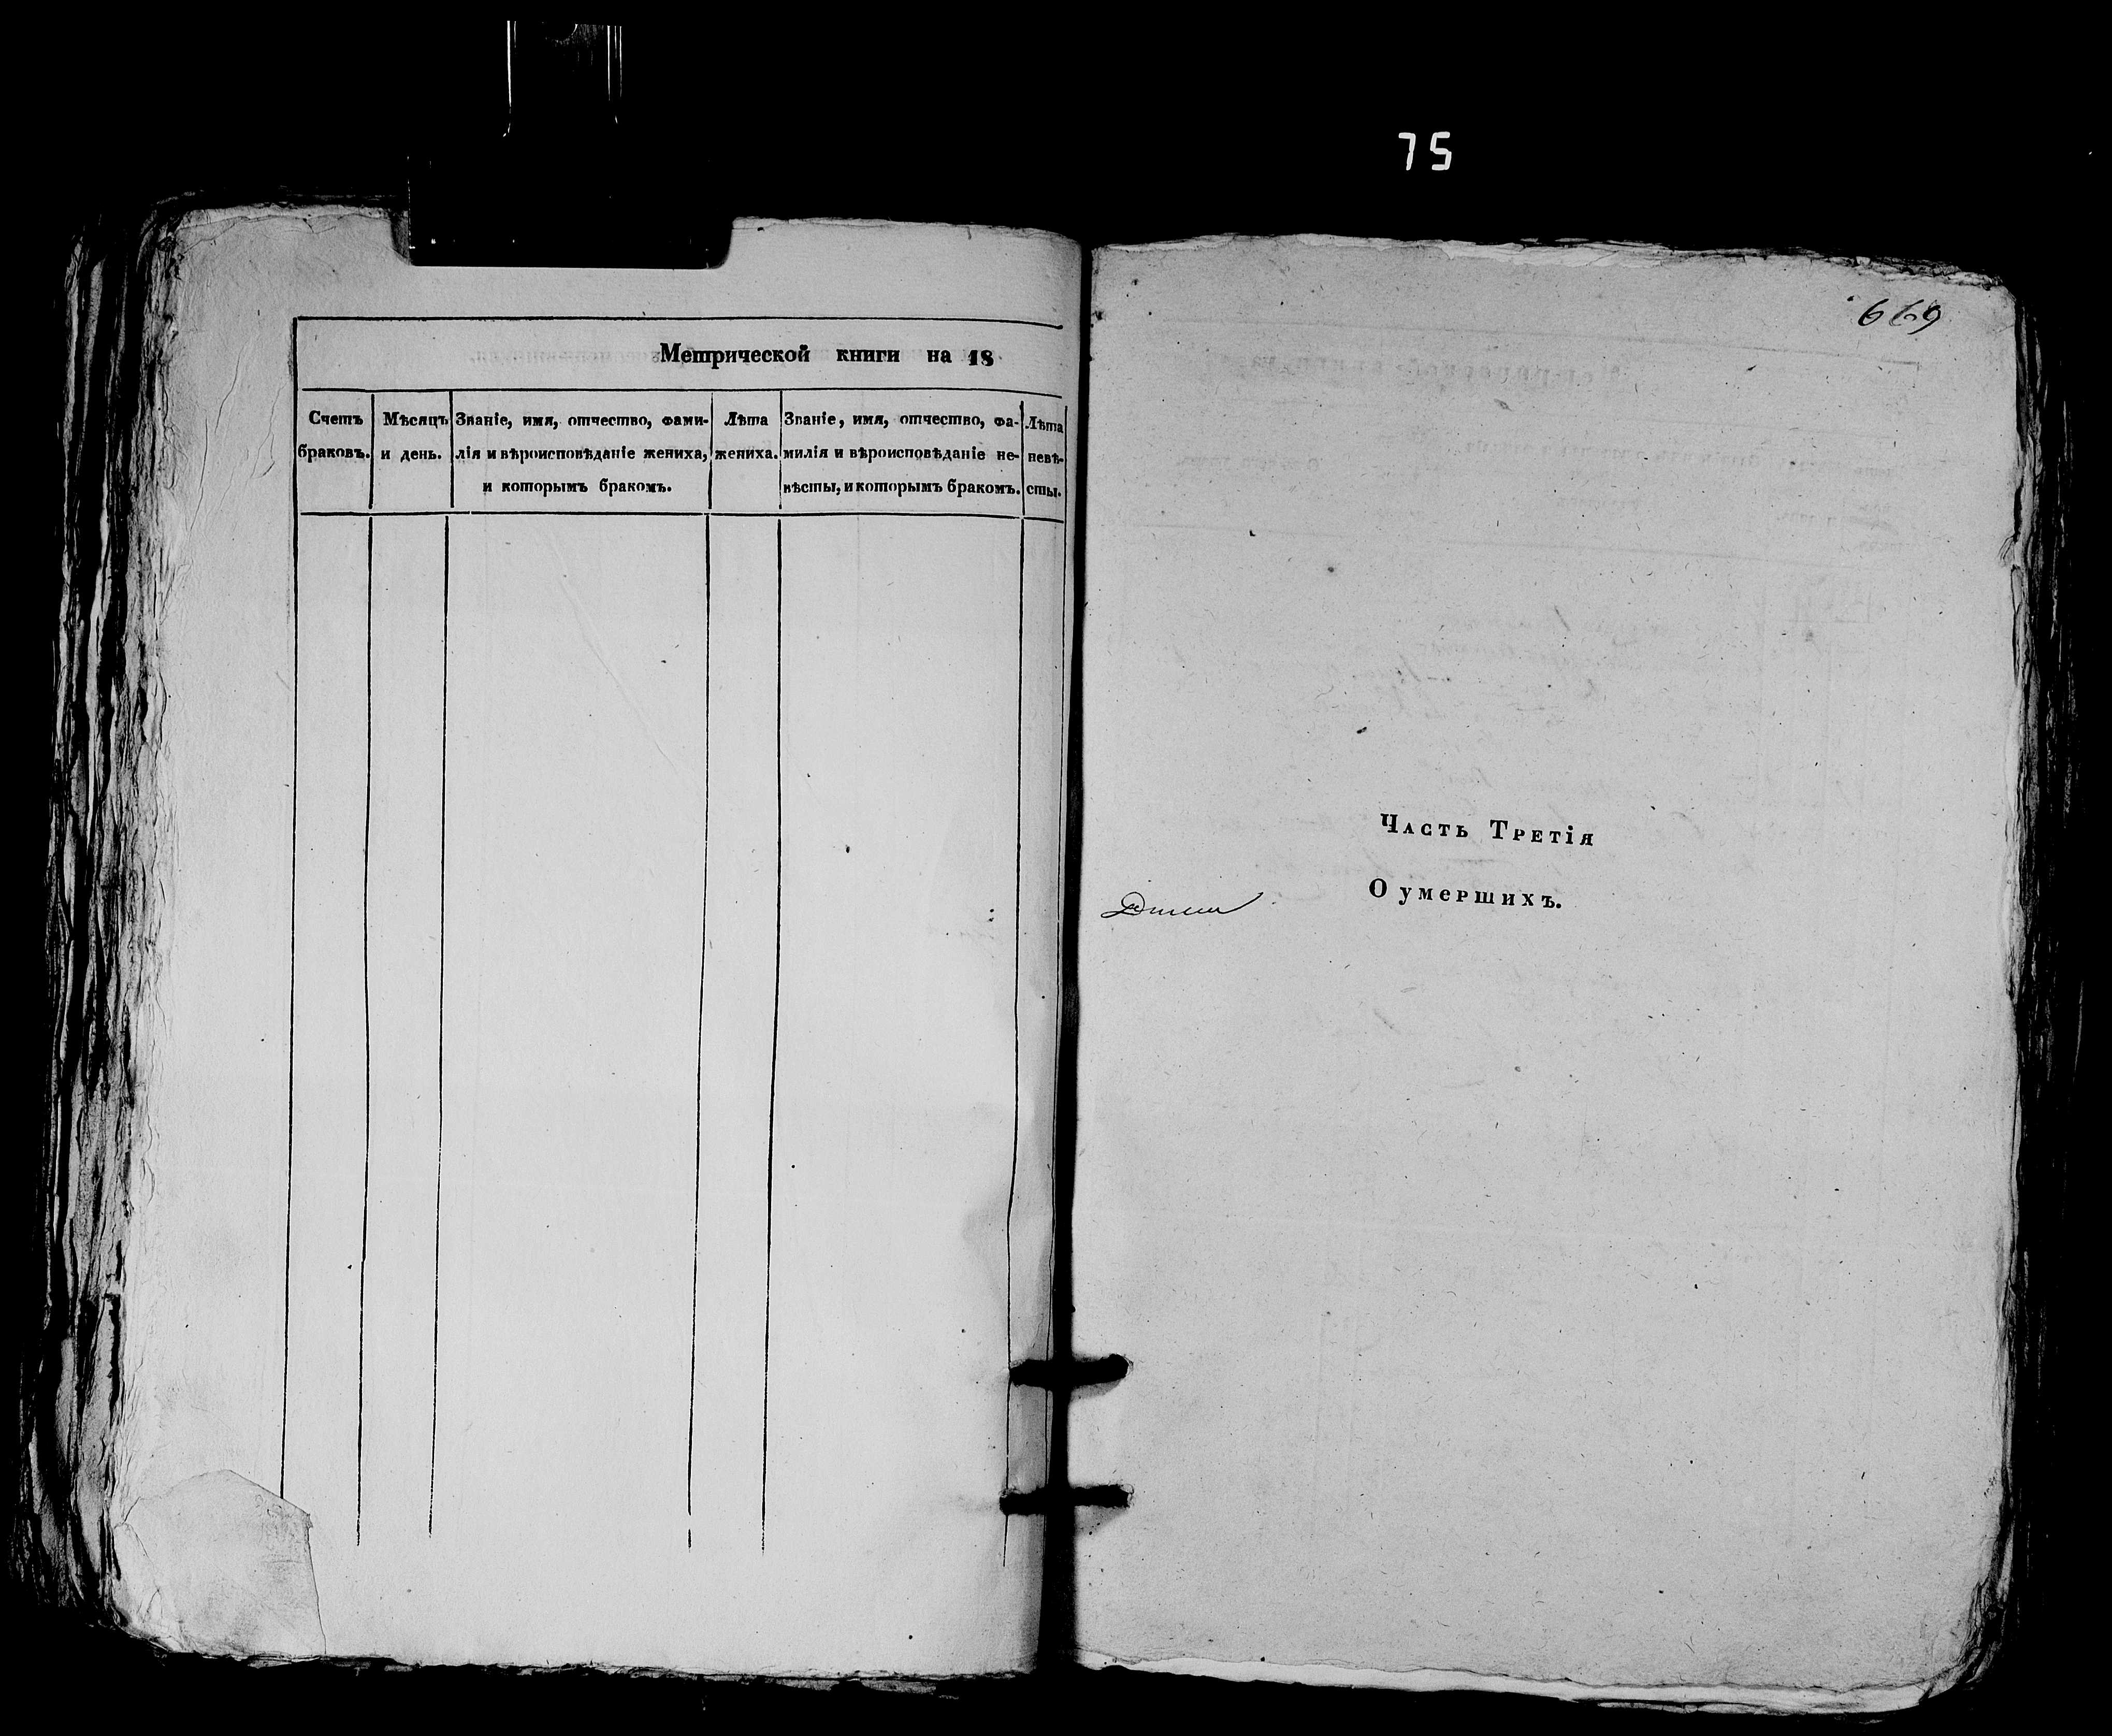 75
Метрической книги на 18
Счетъ браковъ.
Мѣсяцъ и день.
Званіе, имя, отчество, фами-
лія и вѣроисповѣданіе жениха,
и которымъ бракомъ.
Лѣта
жениха.
Званіе, имя, отчество, фа-
милія и вѣроисповѣданіе не-
вѣсты, и которымъ бракомъ.
Лѣта
невѣ-
сты.
669
Часть Третія
О умершихъ.